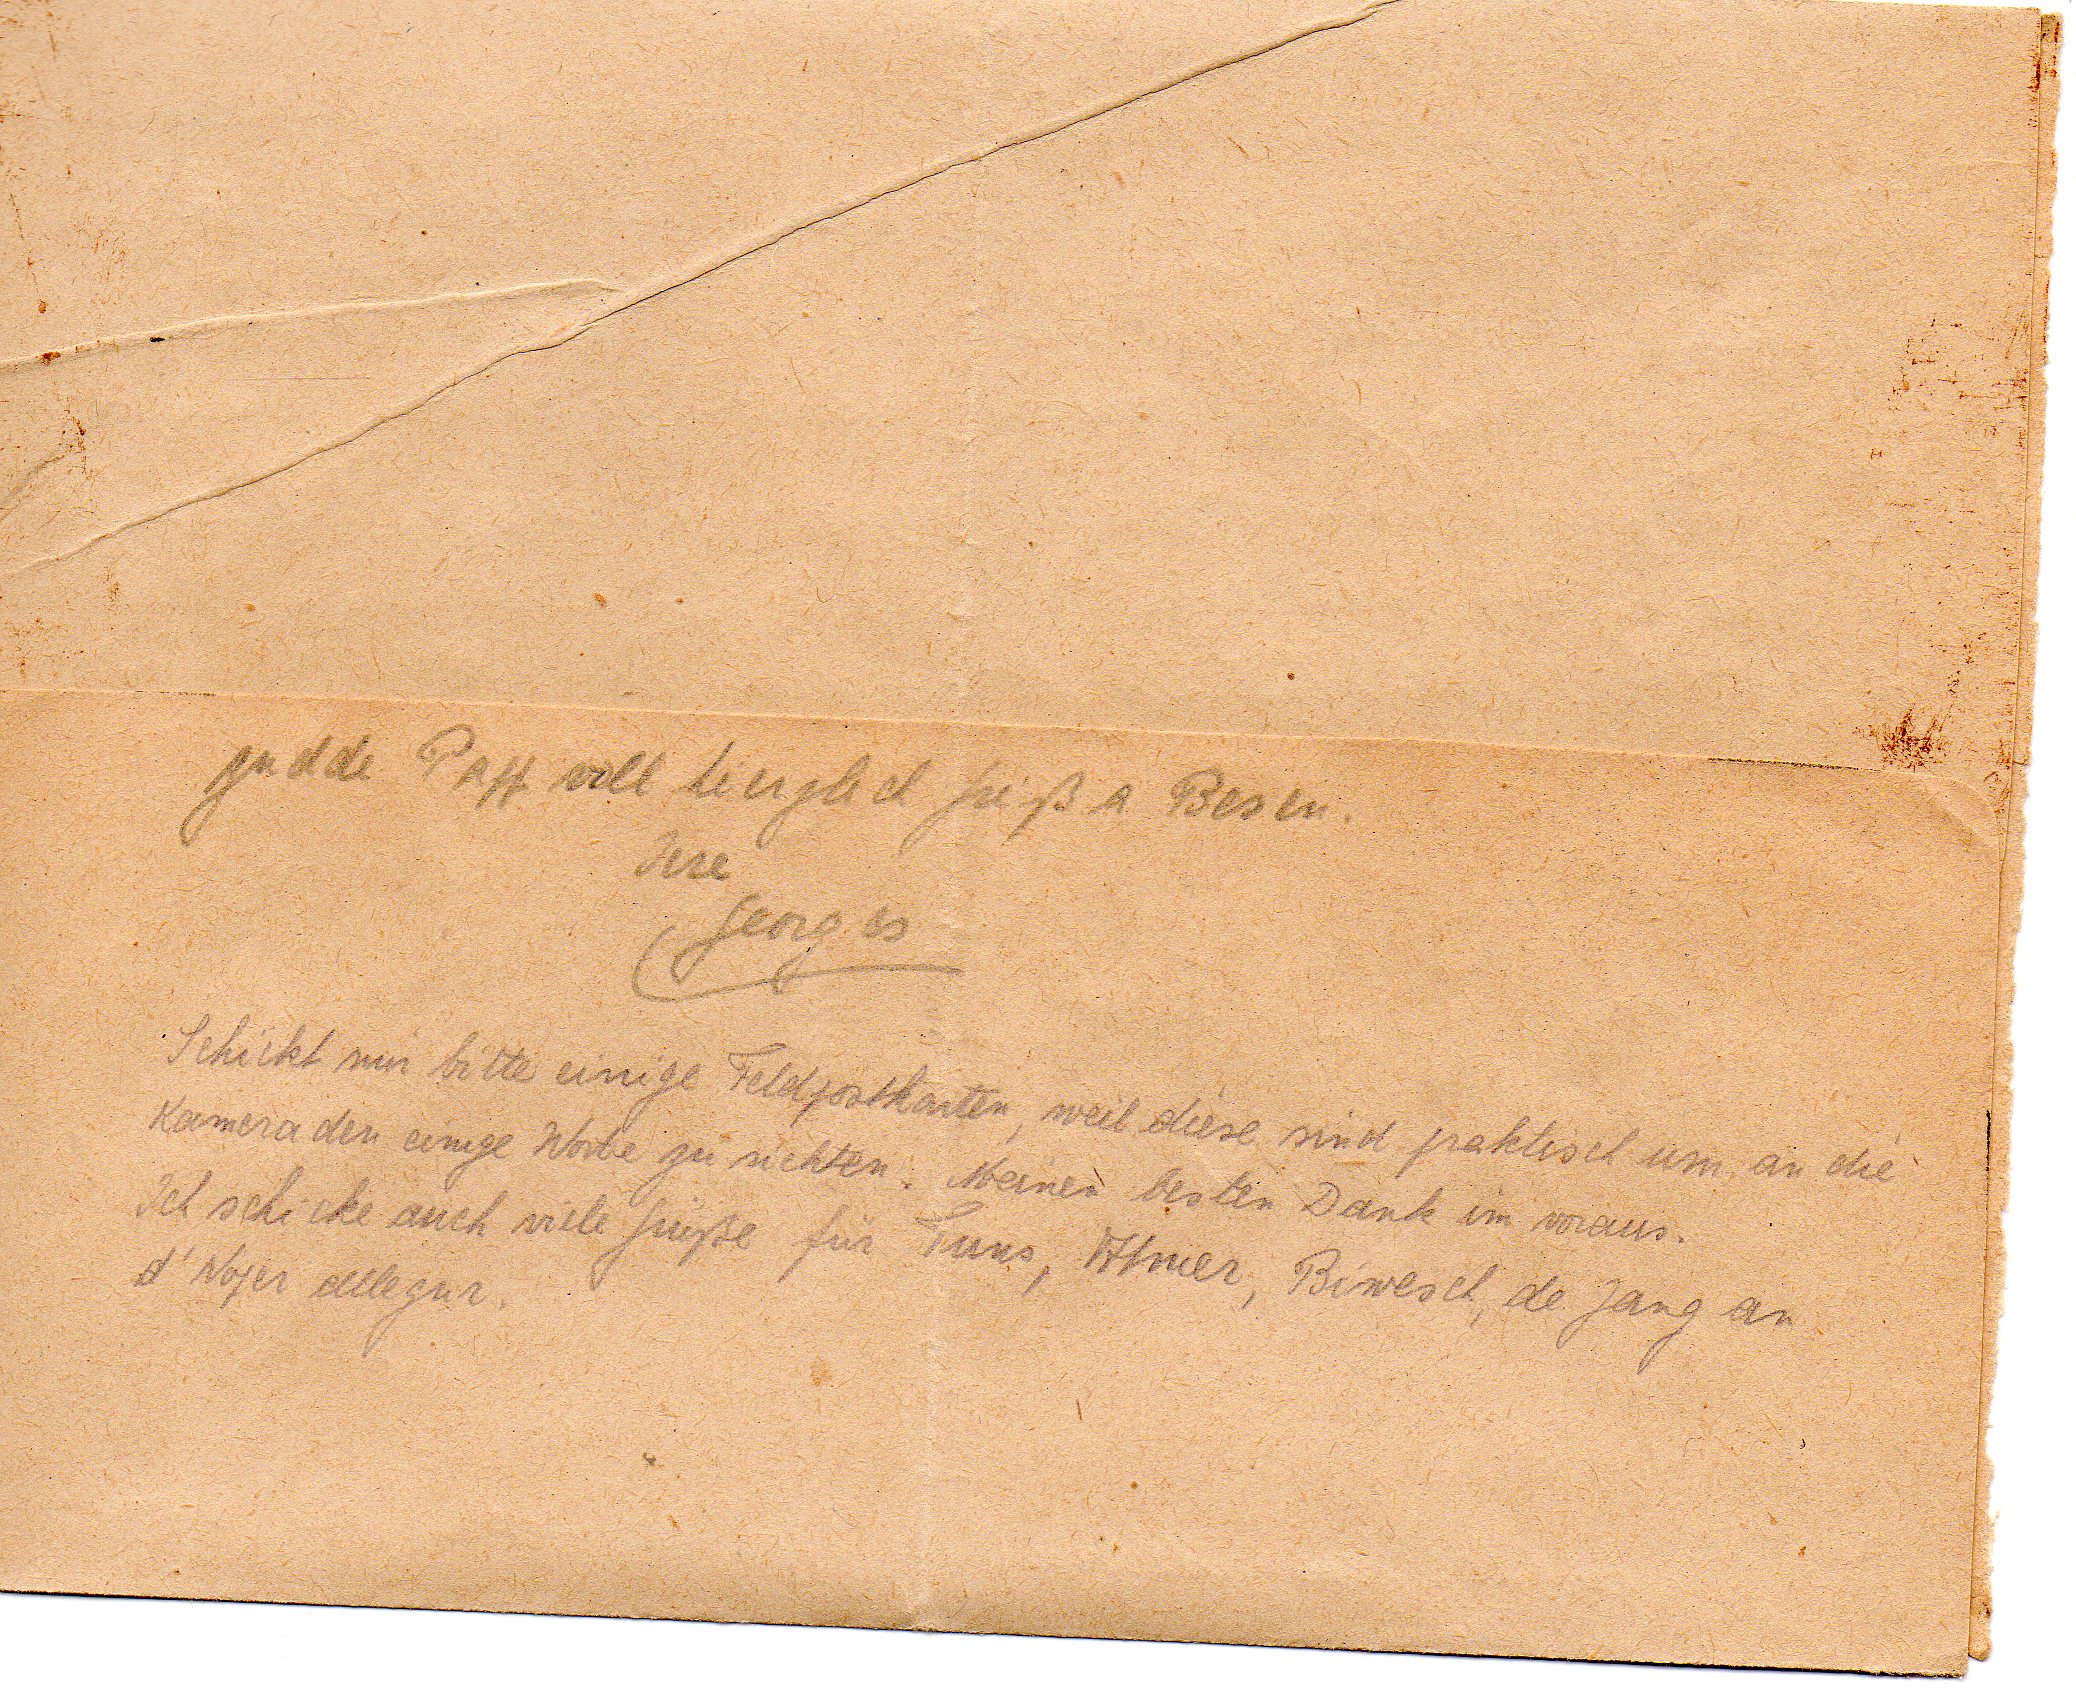 gudde Papp vill hierzlech Griß a Besen.
Iere
Georges
Schickt mir bitte einige Feldpostkarten, weil diese sind praktisch um an die
Kameraden einige Worte zu richten. Meinen besten Dank im voraus.
Ich schicke auch viele Grüße für Tuns, Biwesch, de Jang an
d'Noper alleguer.